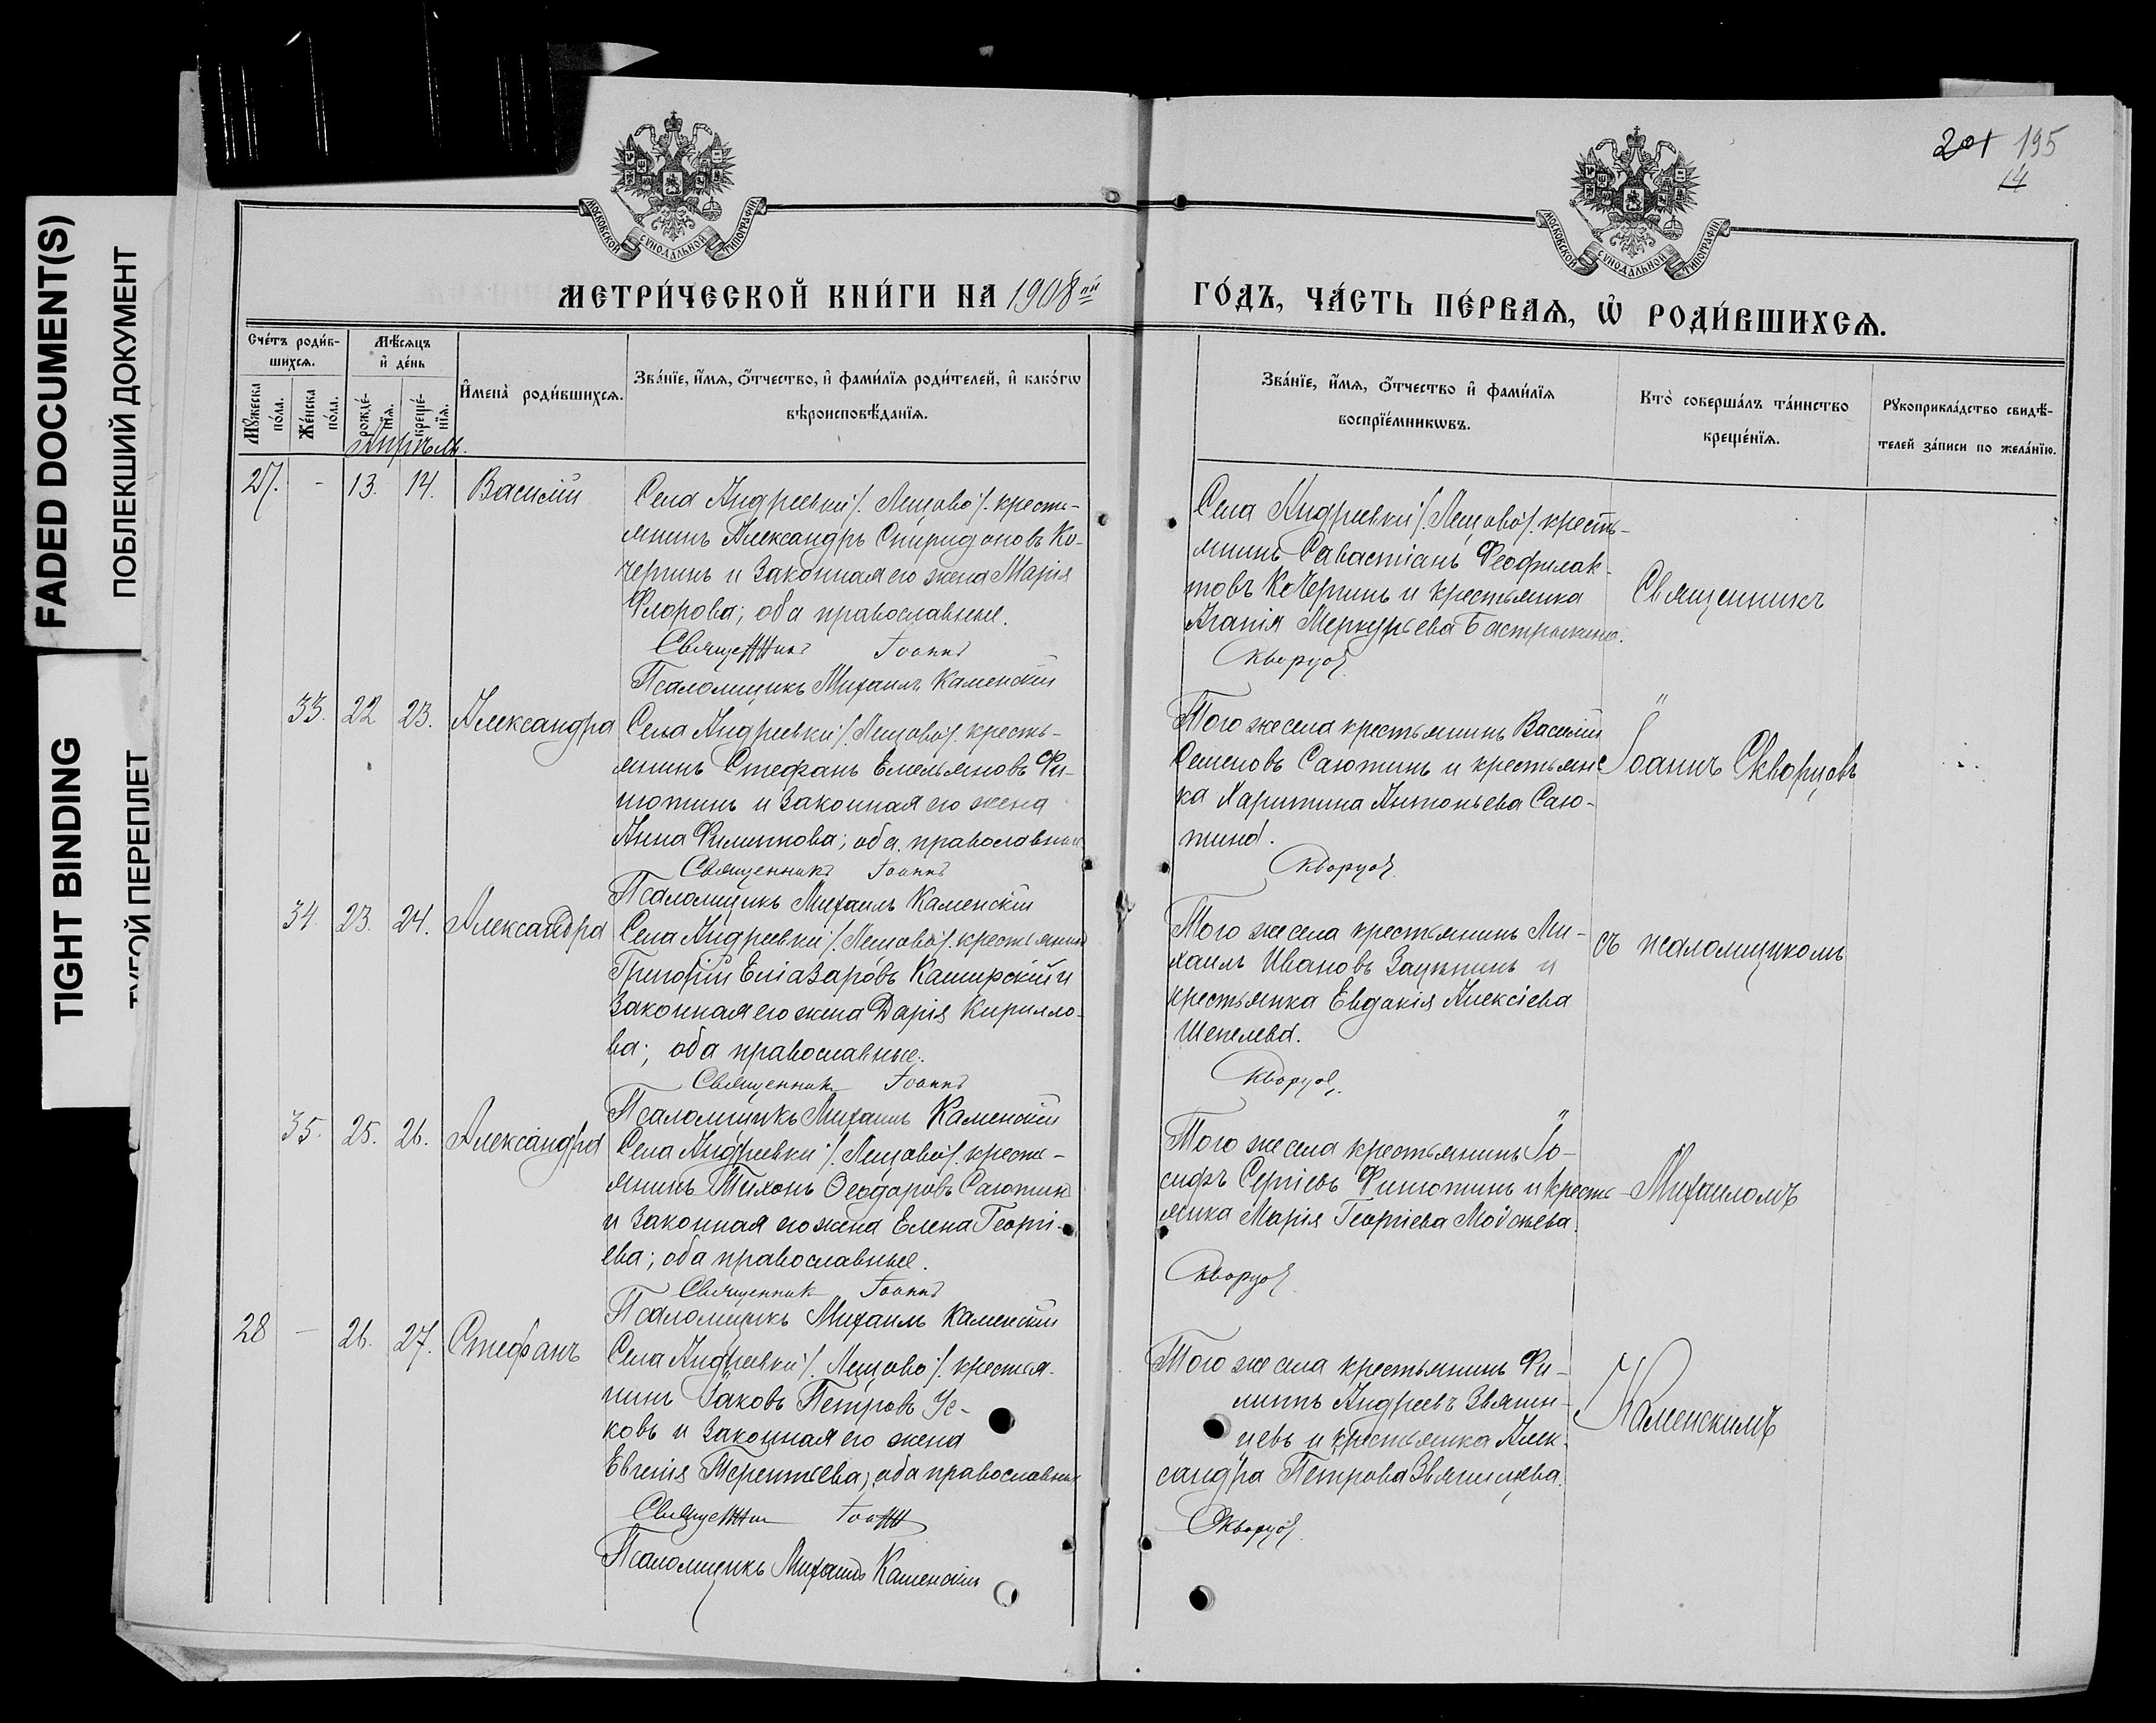 FADED DOCUMENT(S)
ПОБЛЕКШИЙ ДОКУМЕНТ
TIGHT BINDING
ТУГОЙ ПЕРЕПЛЕТ
201 195
14
МОСКОВСКОЙ СУНОДАЛЬНОЙ ТИПОГРАФІИ
МОСКОВСКОЙ СУНОДАЛЬНОЙ ТИПОГРАФІИ
МЕТРИ́ЧЕСКОЙ КНИ́ГИ НА 1908ый
ГО́ДЪ, ЧА́СТЬ ПЕ́РВАѦ, Ѡ҆ РОДИ́ВШИХСѦ.
Сче́тъ роди́в-
шихсѧ.
Мѣ́сѧцъ
и҆ де́нь
Мꙋ́жеска
по́ла.
Же́нска
по́ла.
рожде́-
нїѧ.
креще́-
нїѧ.
И҆мена̀ роди́вшихсѧ.
Зва́нїе, и҆́мѧ, ѻ҆́тчество, и҆ фами́лїѧ роди́телей, и҆ како́гѡ
вѣроисповѣ́данїѧ.
Зва́нїе, и҆́мѧ, ѻ҆́тчество и҆ фами́лїѧ
воспрїе́мникѡвъ.
Кто̀ соверша́лъ та́инство
креще́нїѧ.
Рꙋкоприкла́дство свидѣ́-
телей за́писи по жела́нїю.
Апрѣль.
27. - 13. 14. Василій
Села Андреевки /. Лещово /. кресть-
янинъ Александръ Спиридоновъ Ко-
чергинъ и законная его жена Марія
Флорова; оба православные.
Священникъ Іоаннъ
Псаломщикъ Михаилъ Каменскій
Села Андреевки /. Лещово /. кресть-
янинъ Савастіанъ Феофилак-
товъ Кочергинъ и крестьянка
Агапія Меркурьева Бастрыкина.
Скворцов
Священникъ
33. 22 23. Александра
Села Андреевки /. Лещово /. кресть-
янинъ Стефанъ Емельяновъ Фи-
шотинъ и законная его жена
Анна Филиппова; оба православные
Священникъ Іоаннъ
Псаломщикъ Михаилъ Каменскій
Того же села крестьянинъ Василій
Семеновъ Саютинъ и крестьян-
ка Харитина Антоньева Саю-
тина.
Скворцов
Іоаннъ Скворцовъ
34. 23. 24. Александра
Села Андреевки /. Лещово /. крестьянинъ
Григорій Еліазаровъ Каширскій и
законная его жена Дарія Кирилло-
ва; оба православные.
Священник Іоаннъ
Псаломщикъ Михаилъ Каменскій
Того же села крестьянинъ Ми-
хаилъ Ивановъ и
крестьянка Евдокія Алексіева
Шепелева.
Скворцов
съ псаломщикомъ
35. 25. 26. Александра
Села Андреевки /. Лещово /. кресть-
янинъ Тихонъ Ѳеодоровъ Саютинъ
и законная его жена Елена Георгі-
ева; оба православные.
Священник Іоаннъ
Псаломщикъ Михаилъ Каменскій
Того же села крестьянинъ Іо-
сифъ Сергіевъ Фишотинъ и кресть-
янка Марія Георгіева
Скворцов
Михаиломъ
28 - 26. 27. Стефанъ
Села Андреевки /. Лещово /. крестья-
нинъ Іаковъ Петровъ Ус-
ковъ и законная его жена
Евгенія Терентьева; оба православные
Священник Іоанн
Псаломщикъ Михаилъ Каменскій
Того же села крестьянинъ Фи-
липпъ Андреевъ Звягин-
цевъ и крестьянка Алек-
сандра Петрова Звягинцева.
Скворцов
Каменскимъ